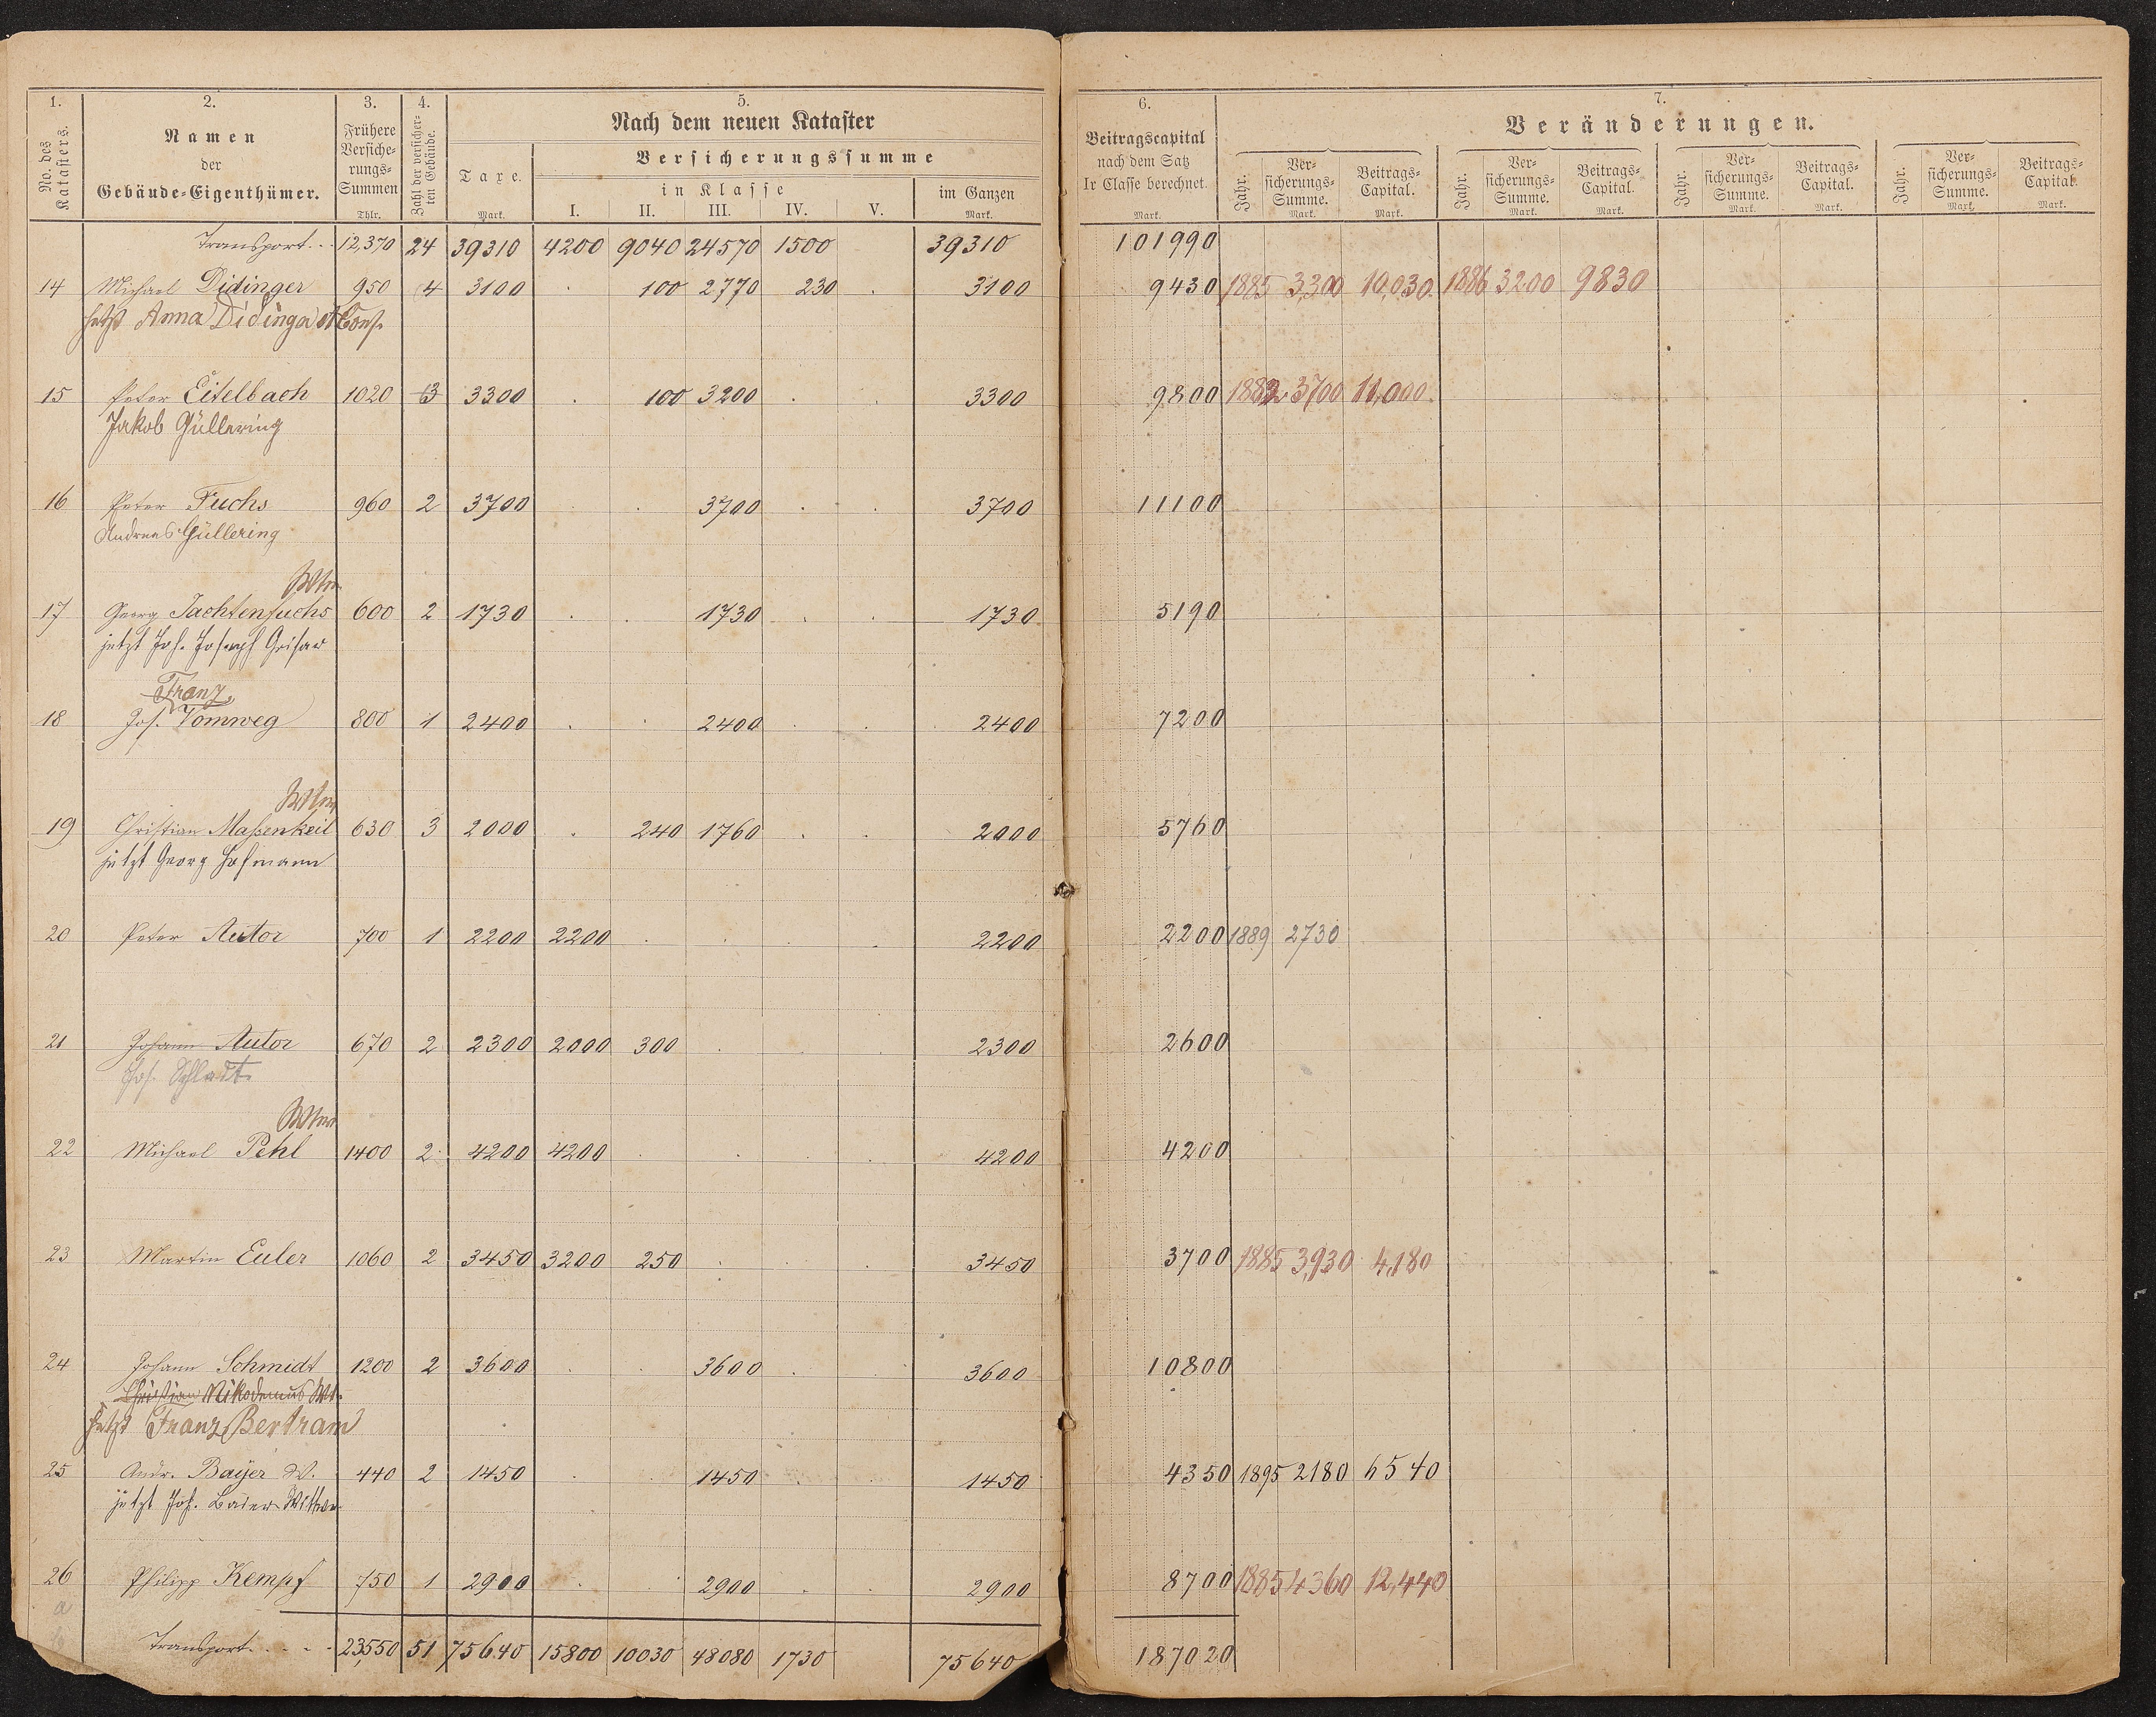 1. 2. 3. 4. 5.
No. des Katasters.
Namen
der
Gebäude-Eigenthümer.
Frühere Versiche-rungs-Summen
Thlr.
Zahl der versicher-ten Gebäude.
Nach dem neuen Kataster
Taxe.
Mark.
Versicherungssumme
in Klasse
I. II. III. IV. V.
im Ganzen
Mark.
6.
Beitragscapital
nach dem Satz
Ir Classe berechnet.
Mark.
7.
Veränderungen.
Jahr. Ver-sicherungs-Summe. Mark. Beitrags-Capital. Mark.
Jahr. Ver-sicherungs-Summe. Mark. Beitrags-Capital. Mark.
Jahr. Ver-sicherungs-Summe. Mark. Beitrags-Capital. Mark.
Jahr. Ver-sicherungs-Summe. Mark. Beitrags-Capital. Mark.
Transport. . . 12,370 24 39310 4200 9040 24570 1500 39310 101990
14 Michael Didinger 950 4 3100 . 100 2770 230 . 3100 9430 1885 3,300 10,030. 1886 3200 9830
jetzt Anna Didinger & Cons.
15 Peter Eitelbach 1020 3 3300 . 100 3200 . . 3300 9800 1882 3700 11,000.
Jakob Güllering
16 Peter Fuchs 960 2 3700 . . 3700 . . 3700 11100
Andreas Güllering
Wtw
17 Georg Jachtenfuchs 600 2 1730 . . 1730 . . 1730 5190
jetzt Joh. Joseph Grisar
Franz
18 Jos. Vomweg 800 1 2400 . . 2400 . . 2400 7200
Wtw
19 Christian Maßenkeil 630 3 2000 . 240 1760 . . 2000 5760
jetzt Georg Hofmann
20 Peter Autor 700 1 2200 2200 . . . . 2200 2200 1889 2730
21 Johann Autor 670 2 2300 2000 300 . . . 2300 2600
Jos. Schladt
Wtw
22 Michael Pehl 1400 2 4200 4200 . . . . 4200 4200
23 Martin Euler 1060 2 3450 3200 250 . . . 3450 3700 1885 3,930 4,180
24 Johann Schmidt 1200 2 3600 . . 3600 . . 3600 10800
Christian Nikodemus Wt.
jetzt Franz Bertram
25 Andr. Bayer W. 440 2 1450 . . 1450 . . 1450 4350 1895 2180 6540
jetzt Joh. Baier Wittwe
26 Philipp Kempf 750 1 2900 . . 2900 . . 2900 8700 1885 4360 12,440
a
Transport. . . . 23,550 51 75640 15800 10030 48080 1730 75640 187020